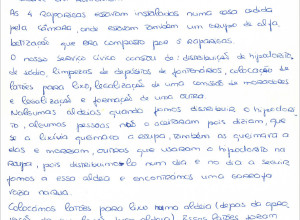 As 4 raparigas estavam instaladas numa casa cedida
pela Câmara, onde estavam também um grupo de alfa
betização que era composto por 5 raparigas
O nosso serviço cívico constou de: distribuição de hipoclorito
de sódio limpezas de depósitos de fontenários, colocação de
latões para lixo, localização de uma comissão de moradores
e localização e formação de uma outra
Nalgumas aldeias quando fomos distribuir o hipoclori
to, algumas pessoas não o aceitaram pois diziam, que
se a lixívia queimava a roupa, também as queimava a
elas e morriam, outras que usaram o hipoclorito na
roupa, pois distribuímo-lo num dia e no dia a seguir
fomos a essa aldeia e encontrámos uma garrafa
vazia
Colocámos latões para lixo numa aldeia (depois da